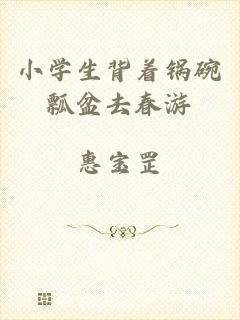 小学生背着锅碗
瓢盆去春游
惠宝罡